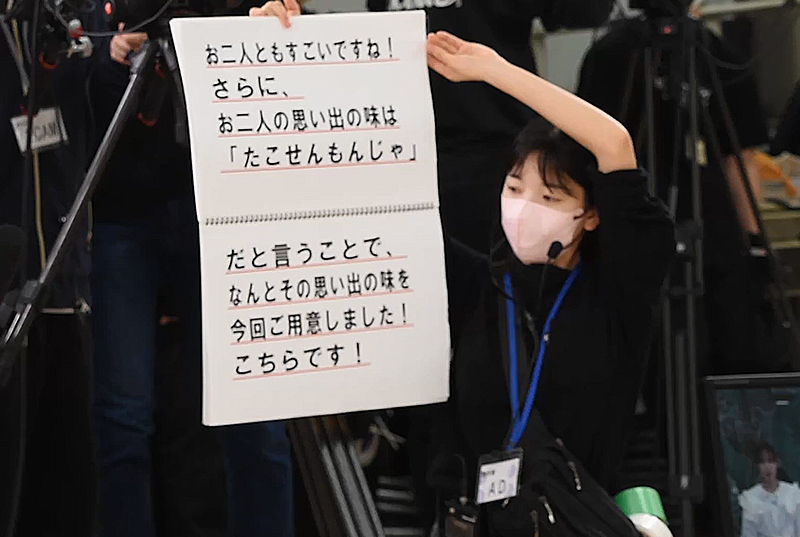 お二人ともすごいですね！
さらに、
お二人の思い出の味は
「たこせんもんじゃ」
だと言うことで、
なんとその思い出の味を
今回ご用意しました！
こちらです！
CAM
AD